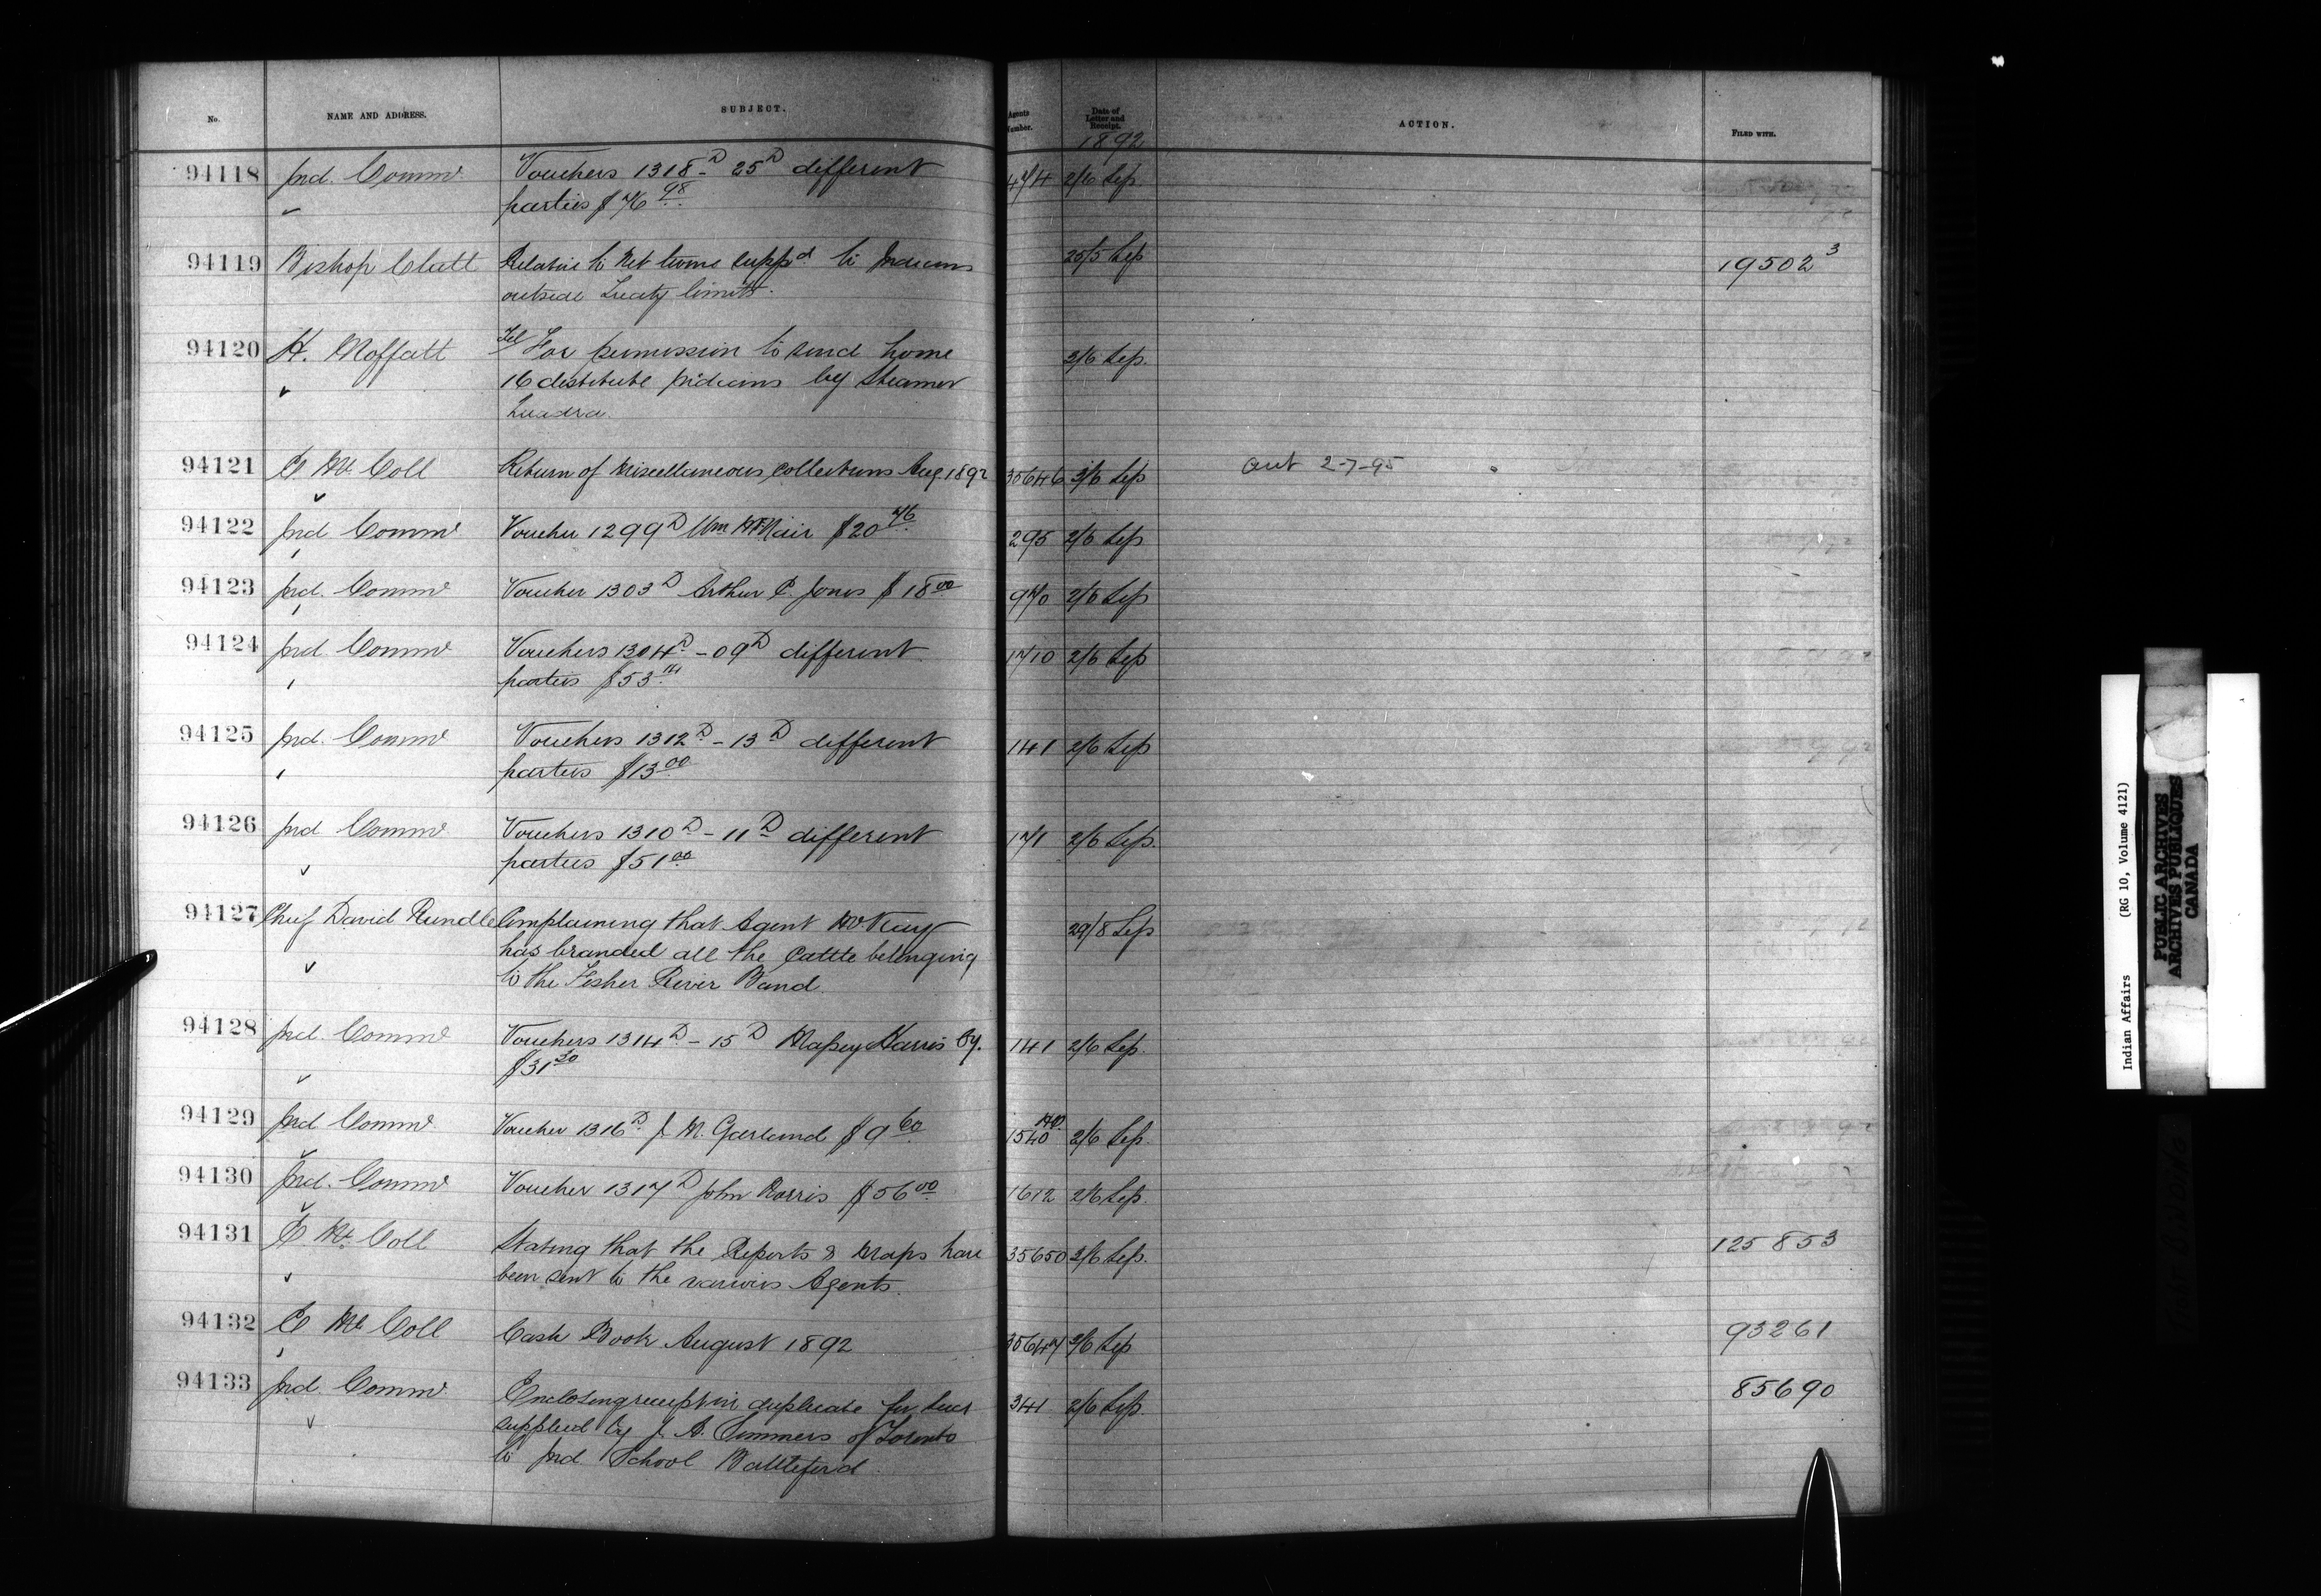 No. NAME AND ADDRESS. SUBJECT. Agents Number. Date of Letter and Receipt. ACTION. FILED WITH.
1892
94118 Ind. Commr Vouchers 1318D - 25D different 474 2/6 Sep.
parties $76.98
94119 Bishop Clutt Relative to Net twine suppd to Indians 25/5 Sep 19502 3
outside Treaty limits.
94120 H. Moffatt Tel For permission to send home 2/6 Sep.
16 destitute Indians by Steamer
Quadra.
94121 E. McColl Return of Miscellaneous collections Aug. 1892 35646 3/6 Sep Ant 2-7-95
94122 Ind Commr Voucher 1299D Wm McNair $20.76 295 2/6 Sep
94123 Ind. Commr Voucher 1303D Arthur C. Jones $18.00 970 2/6 Sep
94124 Ind Commr Vouchers 1304D - 09D different 1710 2/6 Sep
parties $53
94125 Ind. Commr Vouchers 1312D - 13D different 141 2/6 Sep
parties $13.00
94126 Ind Commr Vouchers 1310D - 11D different 171 2/6 Sep.
parties $51.00
94127 Chief David Rundle Complaining that Agent McKay 29/8 Sep
has branded all the Cattle belonging
to the Fisher River Band.
94128 Ind. Commr Vouchers 1314D - 15D Massey Harris Cy. 141 2/6 Sep.
$31.30
94129 Ind Commr Voucher 1316D J. M. Garland $9.60 1540 2/6 Sep.
94130 Ind. Commr Voucher 1317D John Norris $56.00 1612 2/6 Sep.
94131 E. McColl Stating that the Reports & Maps have 35650 3/6 Sep. 125853
been sent to the various Agents.
94132 E McColl Cash Book August 1892 35647 3/6 Sep 93261
94133 Ind. Commr Enclosing receipt in duplicate for 341 2/6 Sep. 85690
supplied by J. A. Simmers of Toronto
to Ind School Battleford.
Indian Affairs (RG 10, Volume 4121)
PUBLIC ARCHIVES
ARCHIVES PUBLIQUES
CANADA